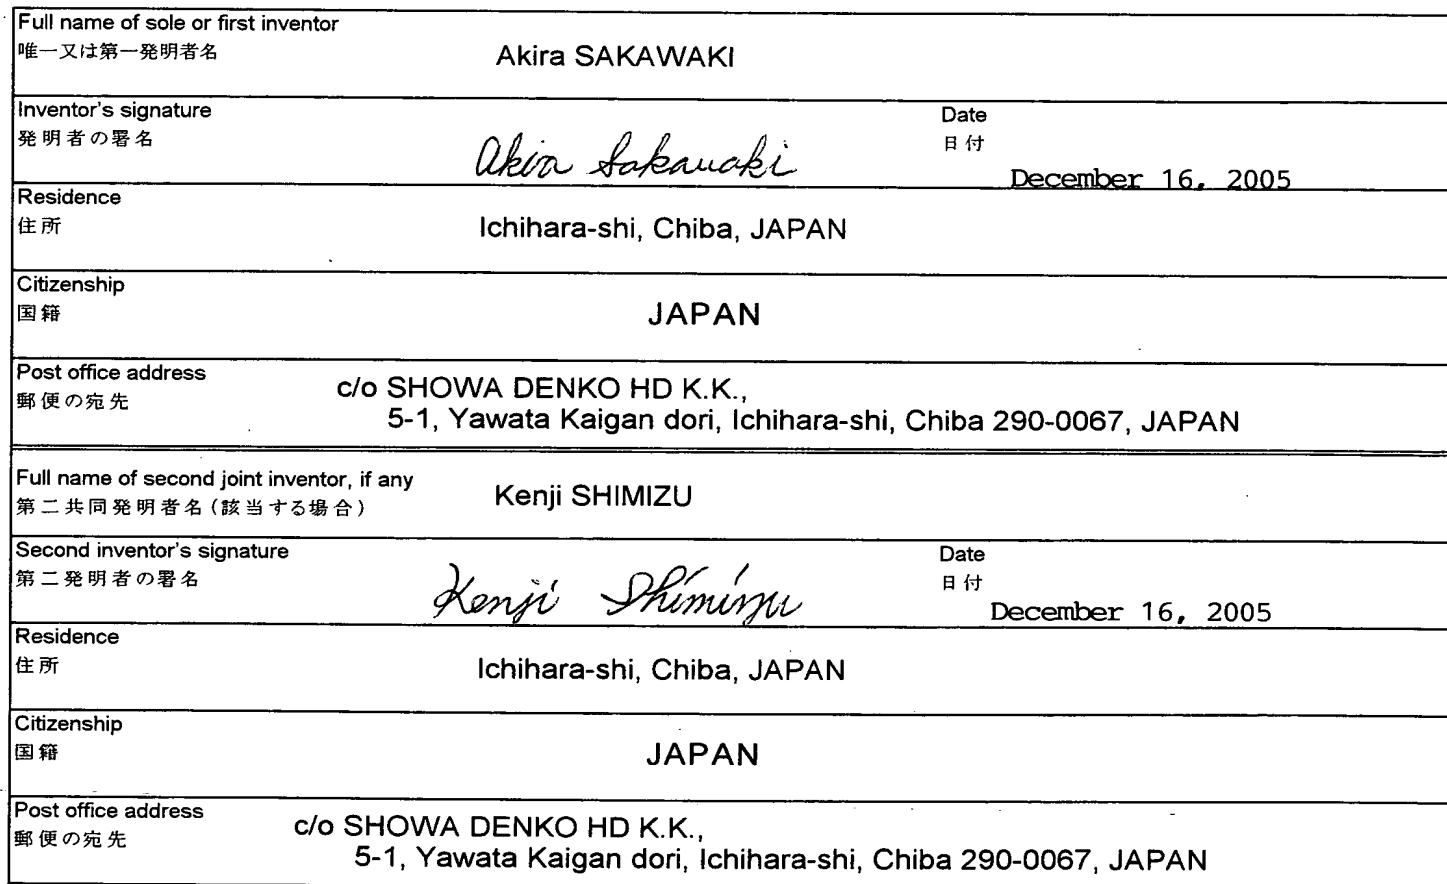 Full name of sole or first inventor
唯一又は第一発明者名
Akira SAKAWAKI
Inventor's signature
発明者の署名
Akira Sakawaki
Date
日付
December 16, 2005
Residence
住所
Ichihara-shi, Chiba, JAPAN
Citizenship
国籍
JAPAN
Post office address
郵便の宛先
c/o SHOWA DENKO HD K.K.,
5-1, Yawata Kaigan dori, Ichihara-shi, Chiba 290-0067, JAPAN
Full name of second joint inventor, if any
第二共同発明者名(該当する場合)
Kenji SHIMIZU
Second inventor's signature
第二発明者の署名
Kenji Shimizu
Date
日付
December 16, 2005
Residence
住所
Ichihara-shi, Chiba, JAPAN
Citizenship
国籍
JAPAN
Post office address
郵便の宛先
c/o SHOWA DENKO HD K.K.,
5-1, Yawata Kaigan dori, Ichihara-shi, Chiba 290-0067, JAPAN